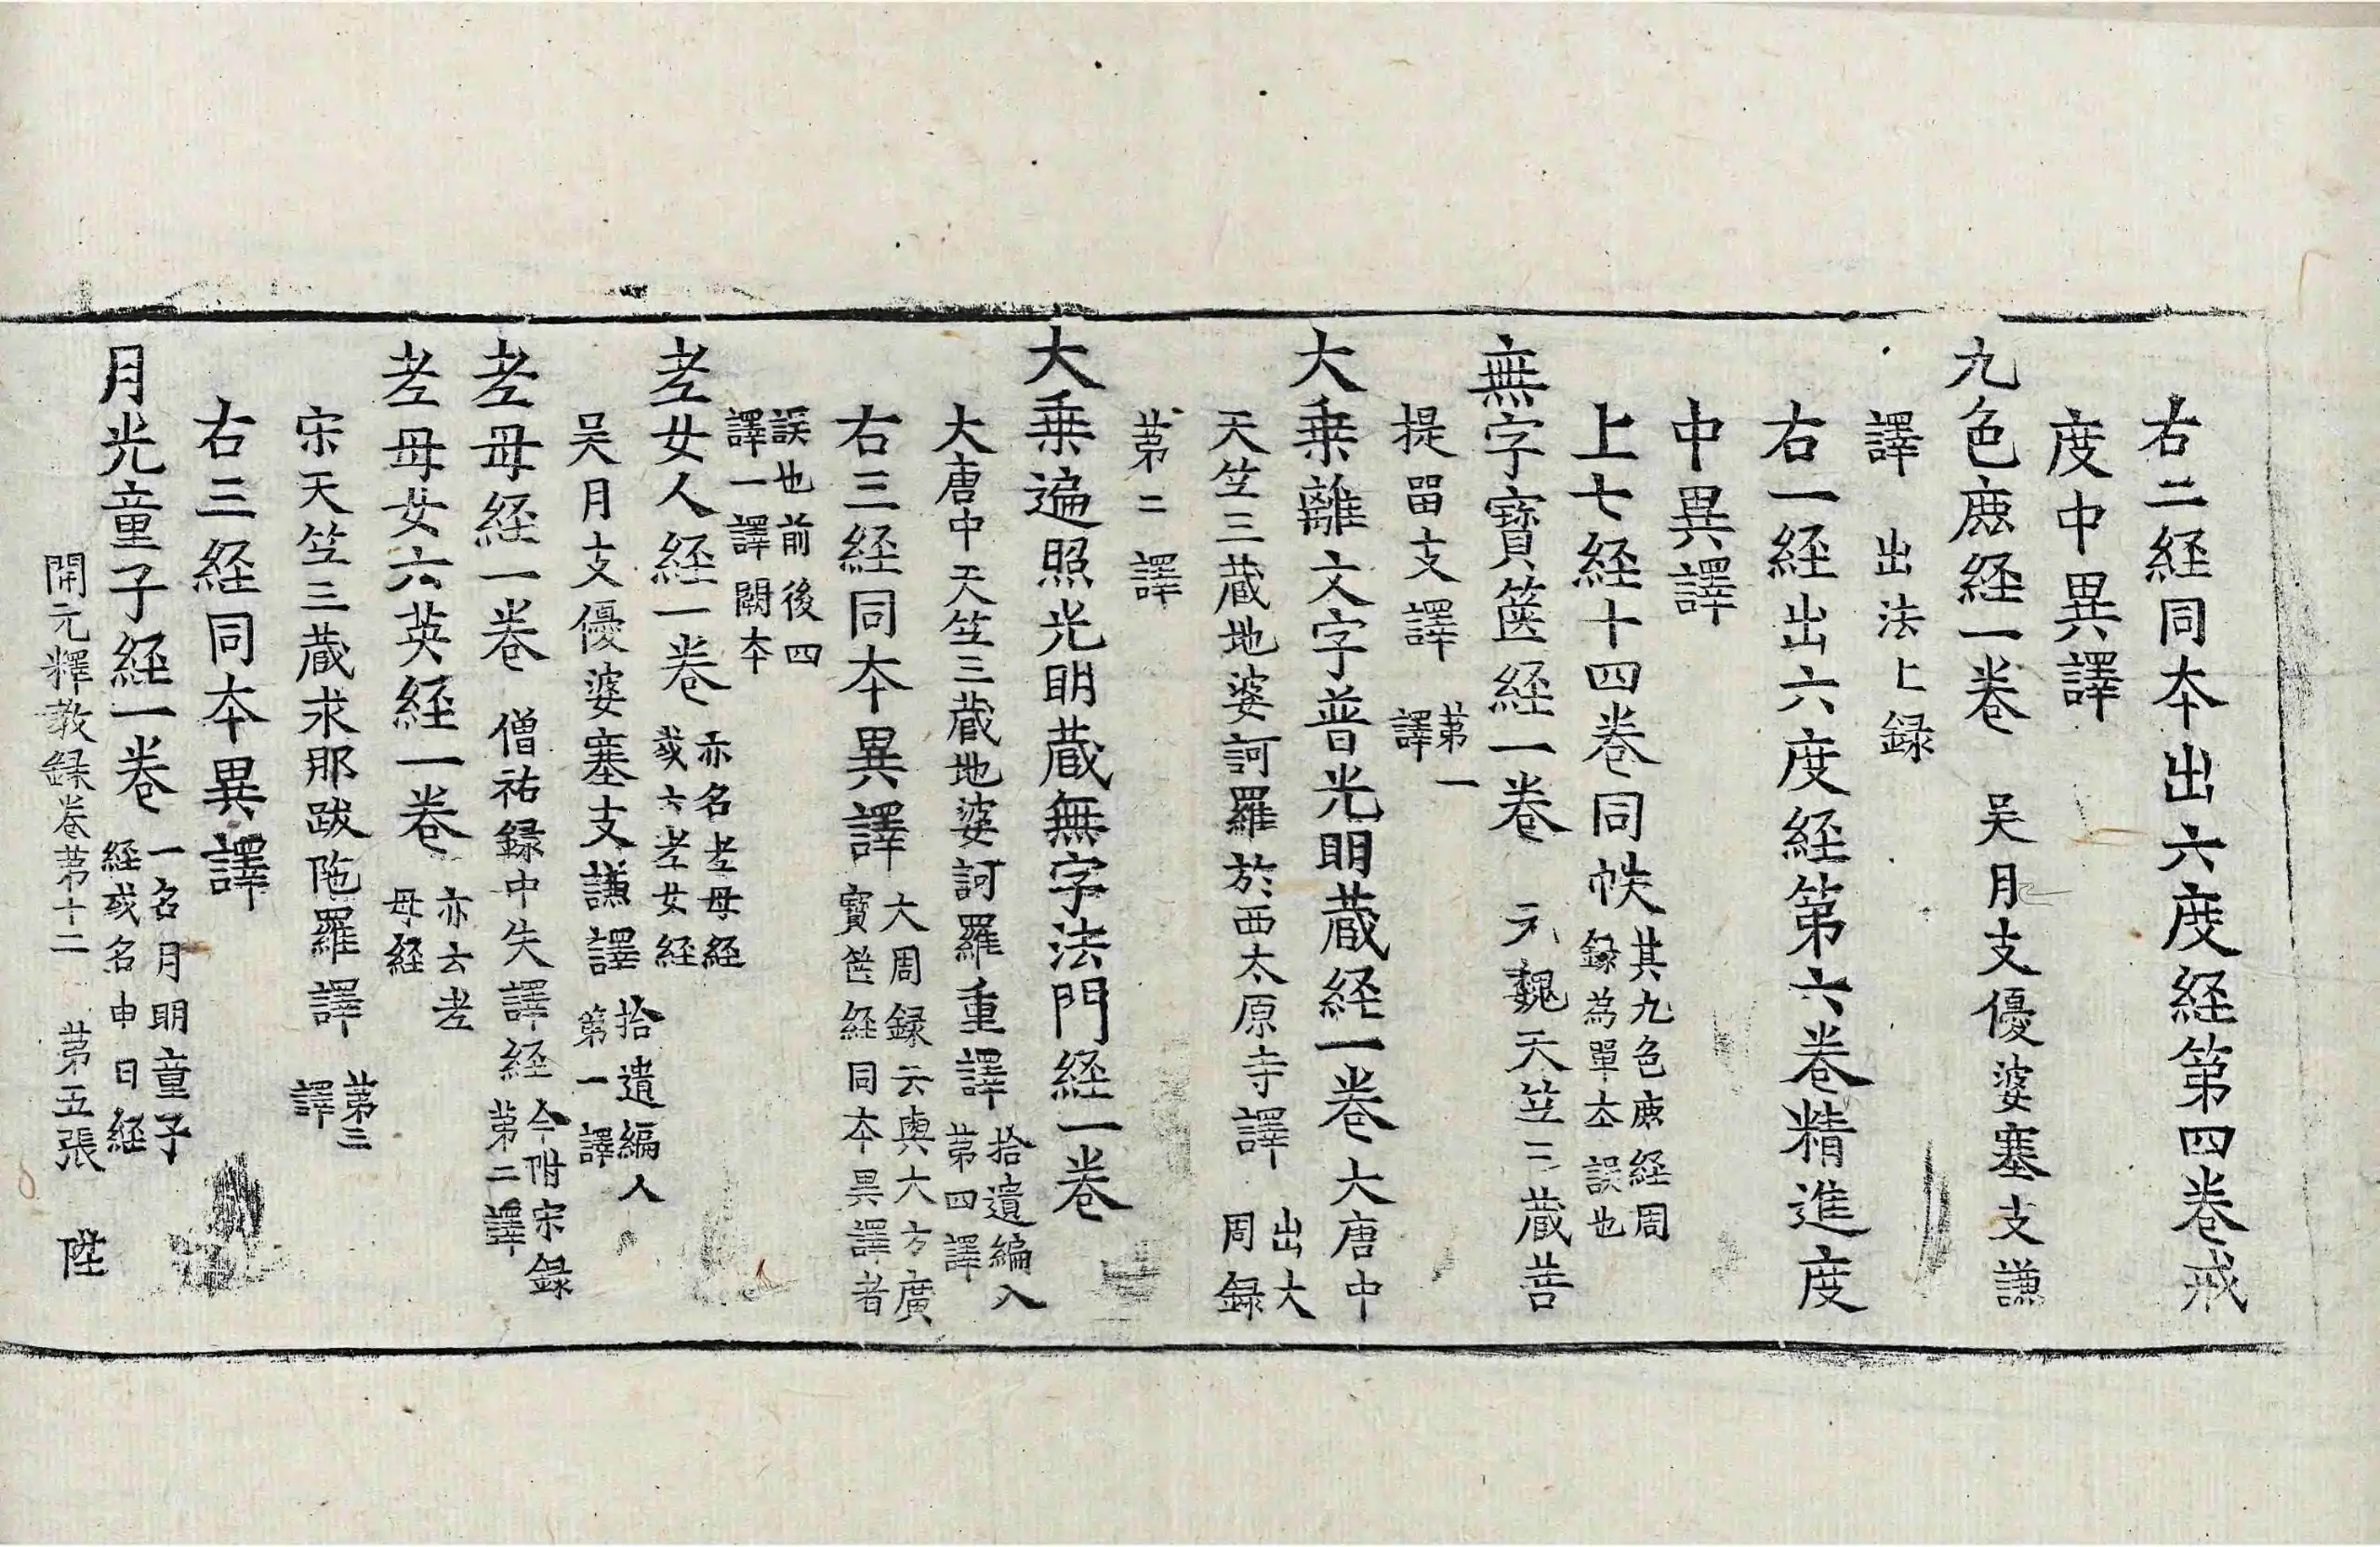 右二経同本出六度経第四卷戒
度中異譯
九色鹿経一卷 吴月支優婆塞支謙
譯 出法上録
右一経出六度経第六卷精進度
中異譯
上七経十四卷同帙 其九色鹿経周
録為單本誤也
無字寶篋経一卷 元魏天竺三蔵菩
提留支譯 苐一
譯
大乗離文字普光明蔵経一卷大唐中
天竺三蔵地婆訶羅於西太原寺譯 出大
周録
苐二譯
大乗遍照光明蔵無字法門経一卷
大唐中天竺三蔵地婆訶羅重譯 拾遺編入
苐四譯
右三経同本異譯 大周録云與大方廣
寶篋経同本異譯者
誤也前後四
譯一譯闕本
老女人経一卷 亦名老母経
或云老女経
吴月支優婆塞支謙譯 拾遺編入
第一譯
老母経一卷 僧祐録中失譯経 今附宋録
苐二譯
老母女六英経一卷 亦云老
母経
宋天竺三蔵求那跋陁羅譯 苐三
譯
右三経同本異譯
月光童子経一卷 一名月明童子
経或名申日経
開元釋教録卷苐十二 苐五張 陞